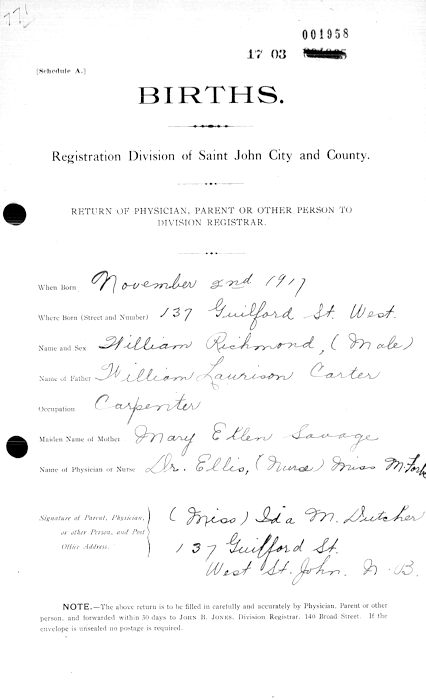 771
001958
17 03
[Schedule A.]
BIRTHS.
Registration Division of Saint John City and County.
RETURN OF PHYSICIAN, PARENT OR OTHER PERSON TO
DIVISION REGISTRAR.
When Born November 2nd 1917
Where Born (Street and Number) 137 Guilford St. West.
Name and Sex William Richmond, (Male)
Name of Father William Laurison Carter
Occupation Carpenter
Maiden Name of Mother Mary Ellen Savage
Name of Physician or Nurse Dr. Ellis, (Nurse) Miss M.
Signature of Parent, Physician, (Miss) Ida M. Dutcher
or other Person, and Post 137 Guilford St.
Office Address. West St. John. N. B.
NOTE.—The above return is to be filled in carefully and accurately by Physician, Parent or other
person, and forwarded within 30 days to JOHN B. JONES, Division Registrar, 140 Broad Street. If the
envelope is unsealed no postage is required.